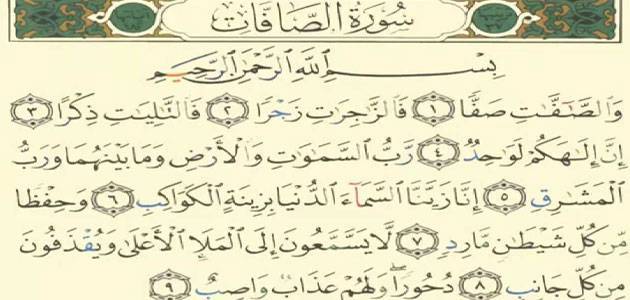 سُورَةُ الصَّافَّاتِ
بِسْمِ ٱللَّهِ ٱلرَّحْمَٰنِ ٱلرَّحِيمِ
وَٱلصَّٰٓفَّٰتِ صَفًّا ١ فَٱلزَّٰجِرَٰتِ زَجْرًا ٢ فَٱلتَّٰلِيَٰتِ ذِكْرًا ٣
إِنَّ إِلَٰهَكُمْ لَوَٰحِدٌ ٤ رَّبُّ ٱلسَّمَٰوَٰتِ وَٱلْأَرْضِ وَمَا بَيْنَهُمَا وَرَبُّ
ٱلْمَشَٰرِقِ ٥ إِنَّا زَيَّنَّا ٱلسَّمَآءَ ٱلدُّنْيَا بِزِينَةٍ ٱلْكَوَاكِبِ ٦ وَحِفْظًا
مِّن كُلِّ شَيْطَٰنٍ مَّارِدٍ ٧ لَّا يَسَّمَّعُونَ إِلَى ٱلْمَلَإِ ٱلْأَعْلَىٰ وَيُقْذَفُونَ
مِن كُلِّ جَانِبٍ ٨ دُحُورًا ۖ وَلَهُمْ عَذَابٌ وَاصِبٌ ٩